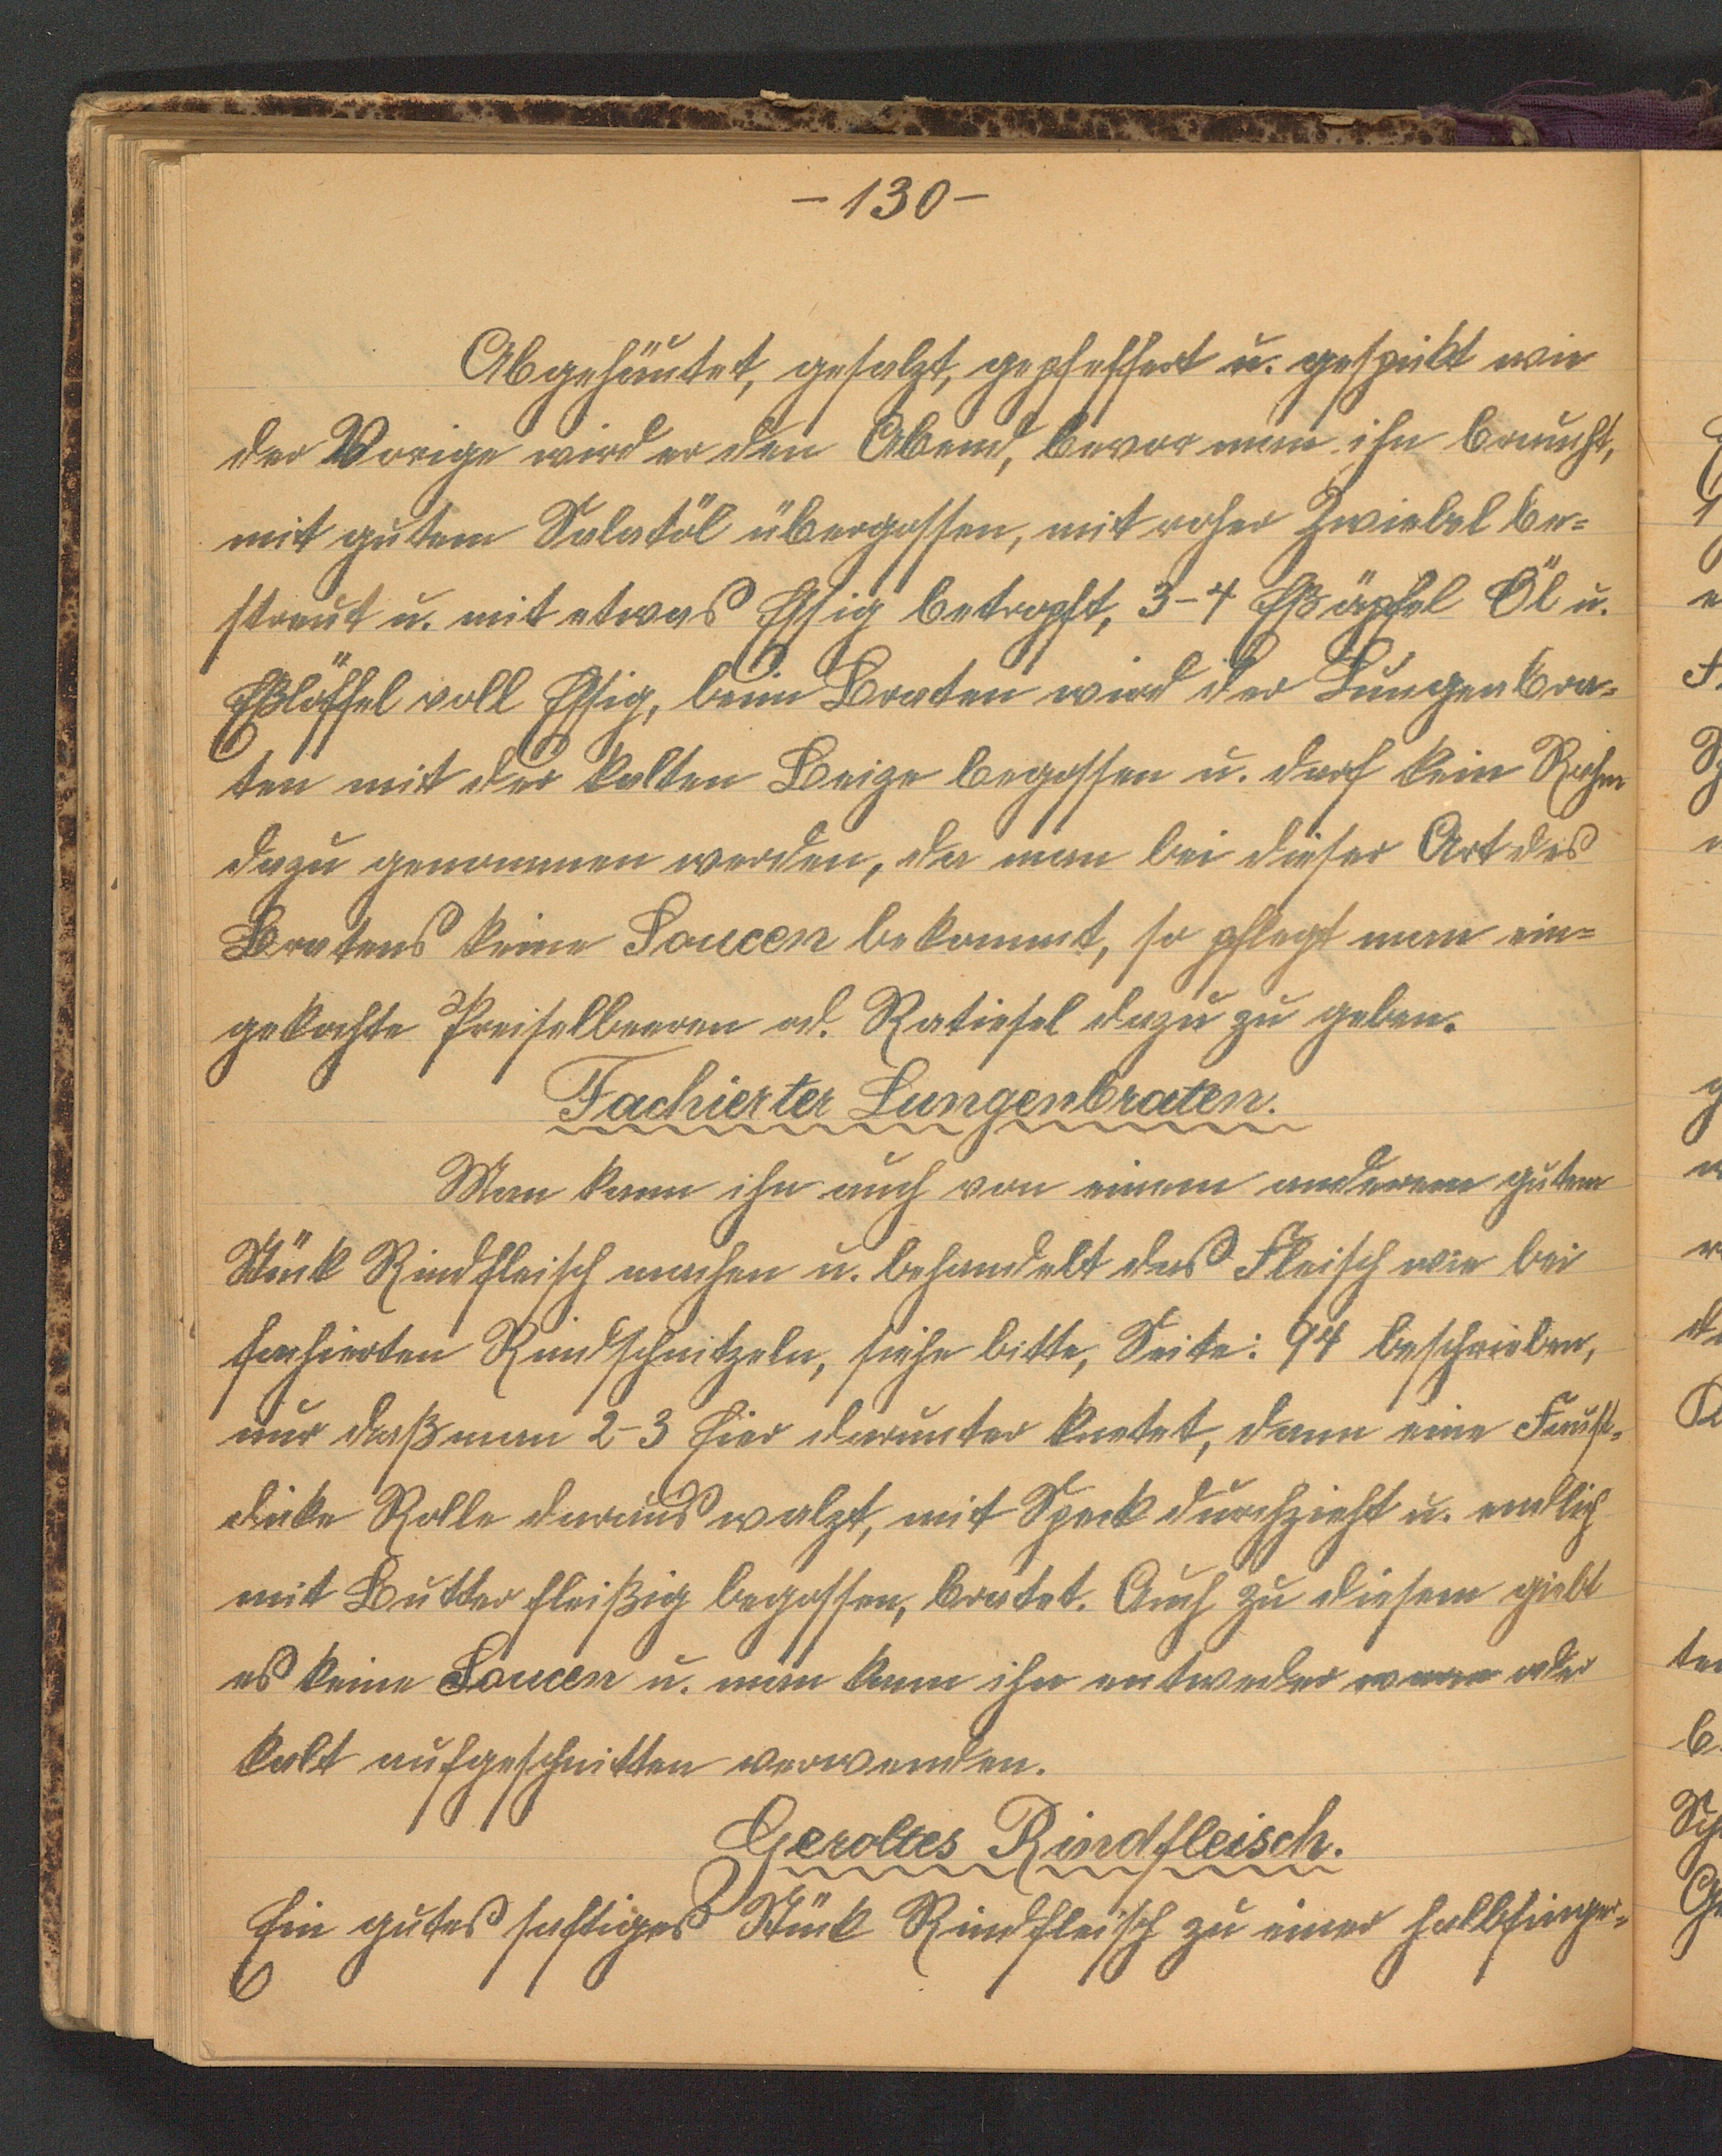 -130-
Abgehäutet, gesalzt, gepfeffert u. gespikt wie
der Vorige wird er den Abend, bevor man ihn braucht,
mit gutem Salatöl übergossen, mit roher Zwiebel be=
streut u. mit etwas Essig betropft, 3-4 Eßäpfel Öl u.
Eßlöffel voll Essig, beim Braten wird der Lungenbra=
ten mit der kalten Beize begossen u. darf kein Rahm
dazu genommen werden, da man bei dieser Art des
Bratens keine Soucen bekommt, so pflegt man ein=
gekochte Preiselbeeren od. Ratiesel dazu zu geben.
Fachierter Lungenbraten.
Man kann ihn auch von einem anderem gutem
Stük Rindfleisch machen u. behandelt das Fleisch wie bei
fachierten Rindschnitzeln, siehe bitte, Seite: 94 beschrieben,
nur daß man 2-3 Eier darunter knetet, dann eine Faust=
dicke Rolle daraus walzt, mit Speck durchzieht u. endlich
mit Butter fleißig begossen, bratet. Auch zu diesem giebt
es keine Soucen u. man kann ihn entweder warm oder
kalt aufgeschnitten verwenden.
Geroltes Rindfleisch.
Ein gutes saftiges Stük Rindfleisch zu einer halbfinger=